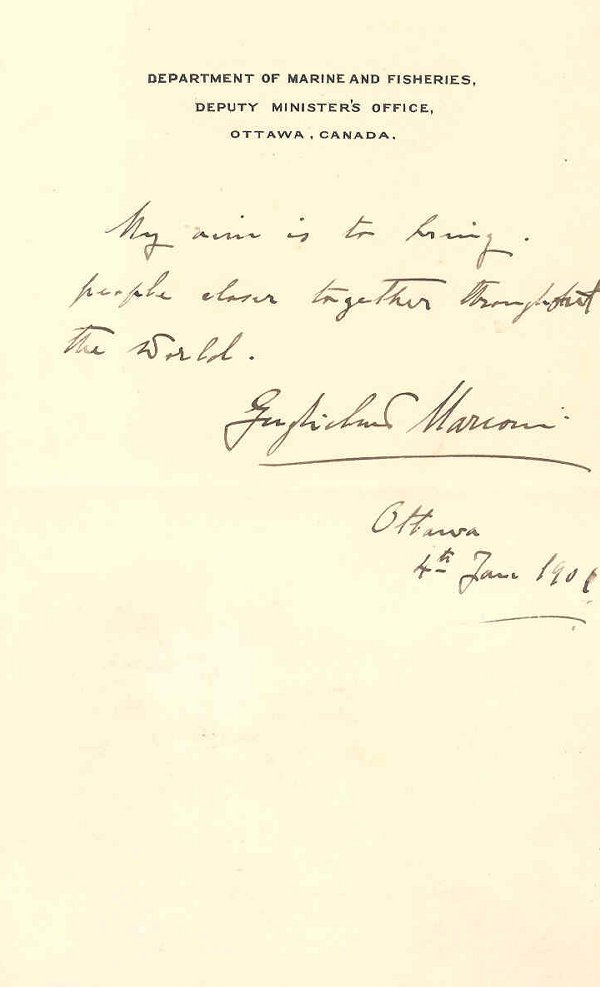 DEPARTMENT OF MARINE AND FISHERIES,
DEPUTY MINISTER'S OFFICE,
OTTAWA, CANADA.
My aim is to bring
people closer together throughout
the world.
Guglielmo Marconi
Ottawa
4th June